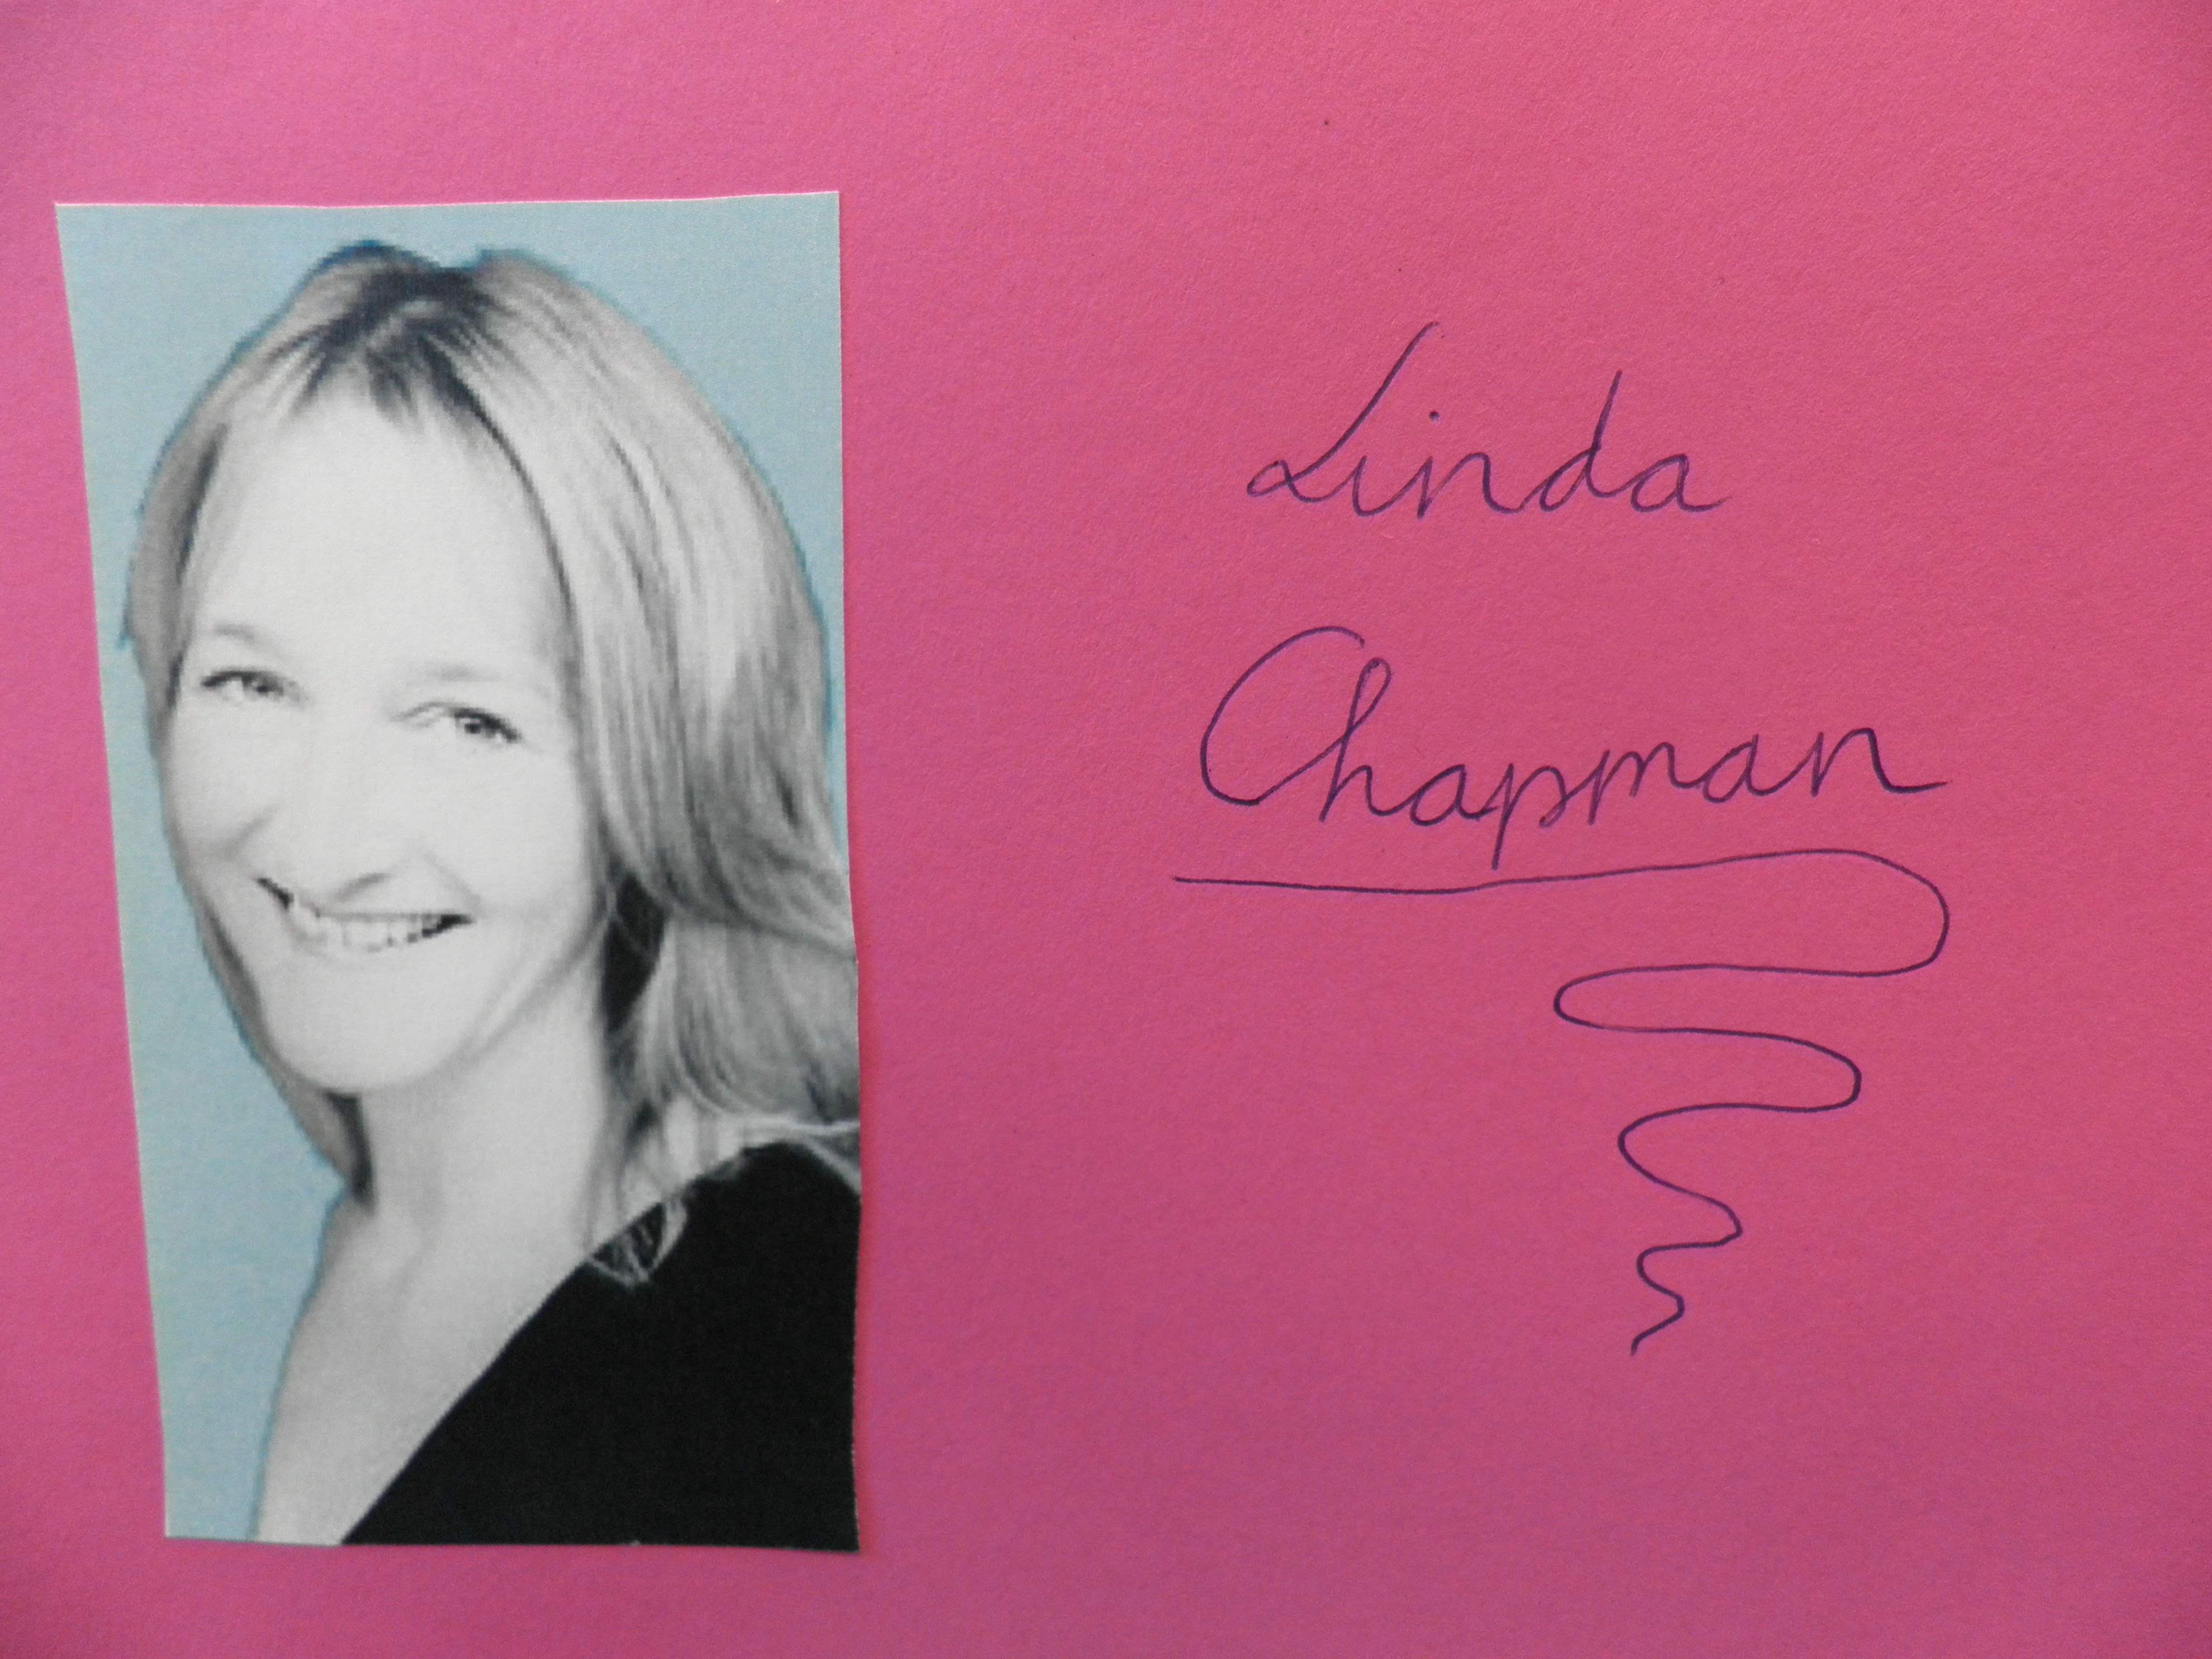 Linda
Chapman